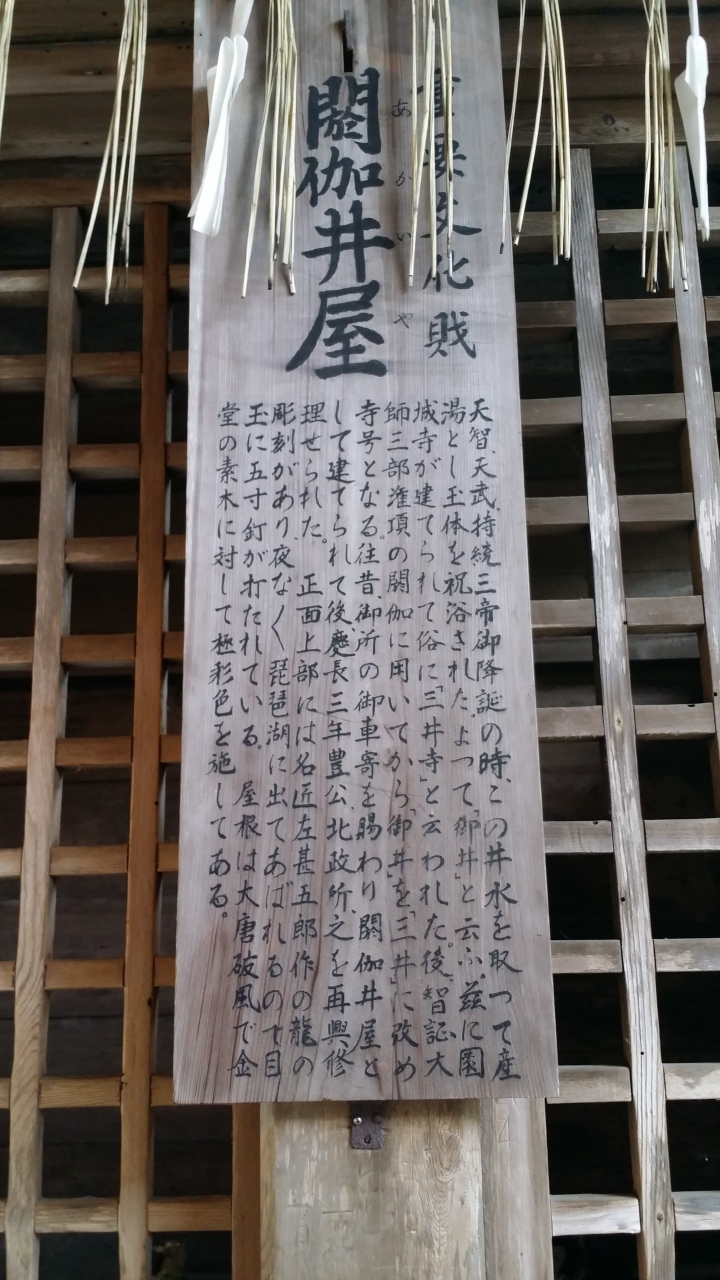 重要文化財
あかいや
閼伽井屋
天智、天武、持統三帝御降誕の時、この井水を取つて産
湯とし玉体を祝浴された。よつて「御井」と云ふ。茲に園
城寺が建てられて俗に「三井寺」と云われた。後、智証大
師三部潅頂の閼伽に用いてから「御井」を「三井」に改め
寺号となる。往昔、御所の御車寄を賜わり閼伽井屋と
して建てられて後、慶長三年豊公、北政所、之を再興修
理せられた。正面上部には名匠左甚五郎作の龍の
彫刻があり夜なく琵琶湖に出てあばれるので目
玉に五寸釘が打たれている。屋根は大唐破風で金
堂の素木に対して極彩色を施してある。